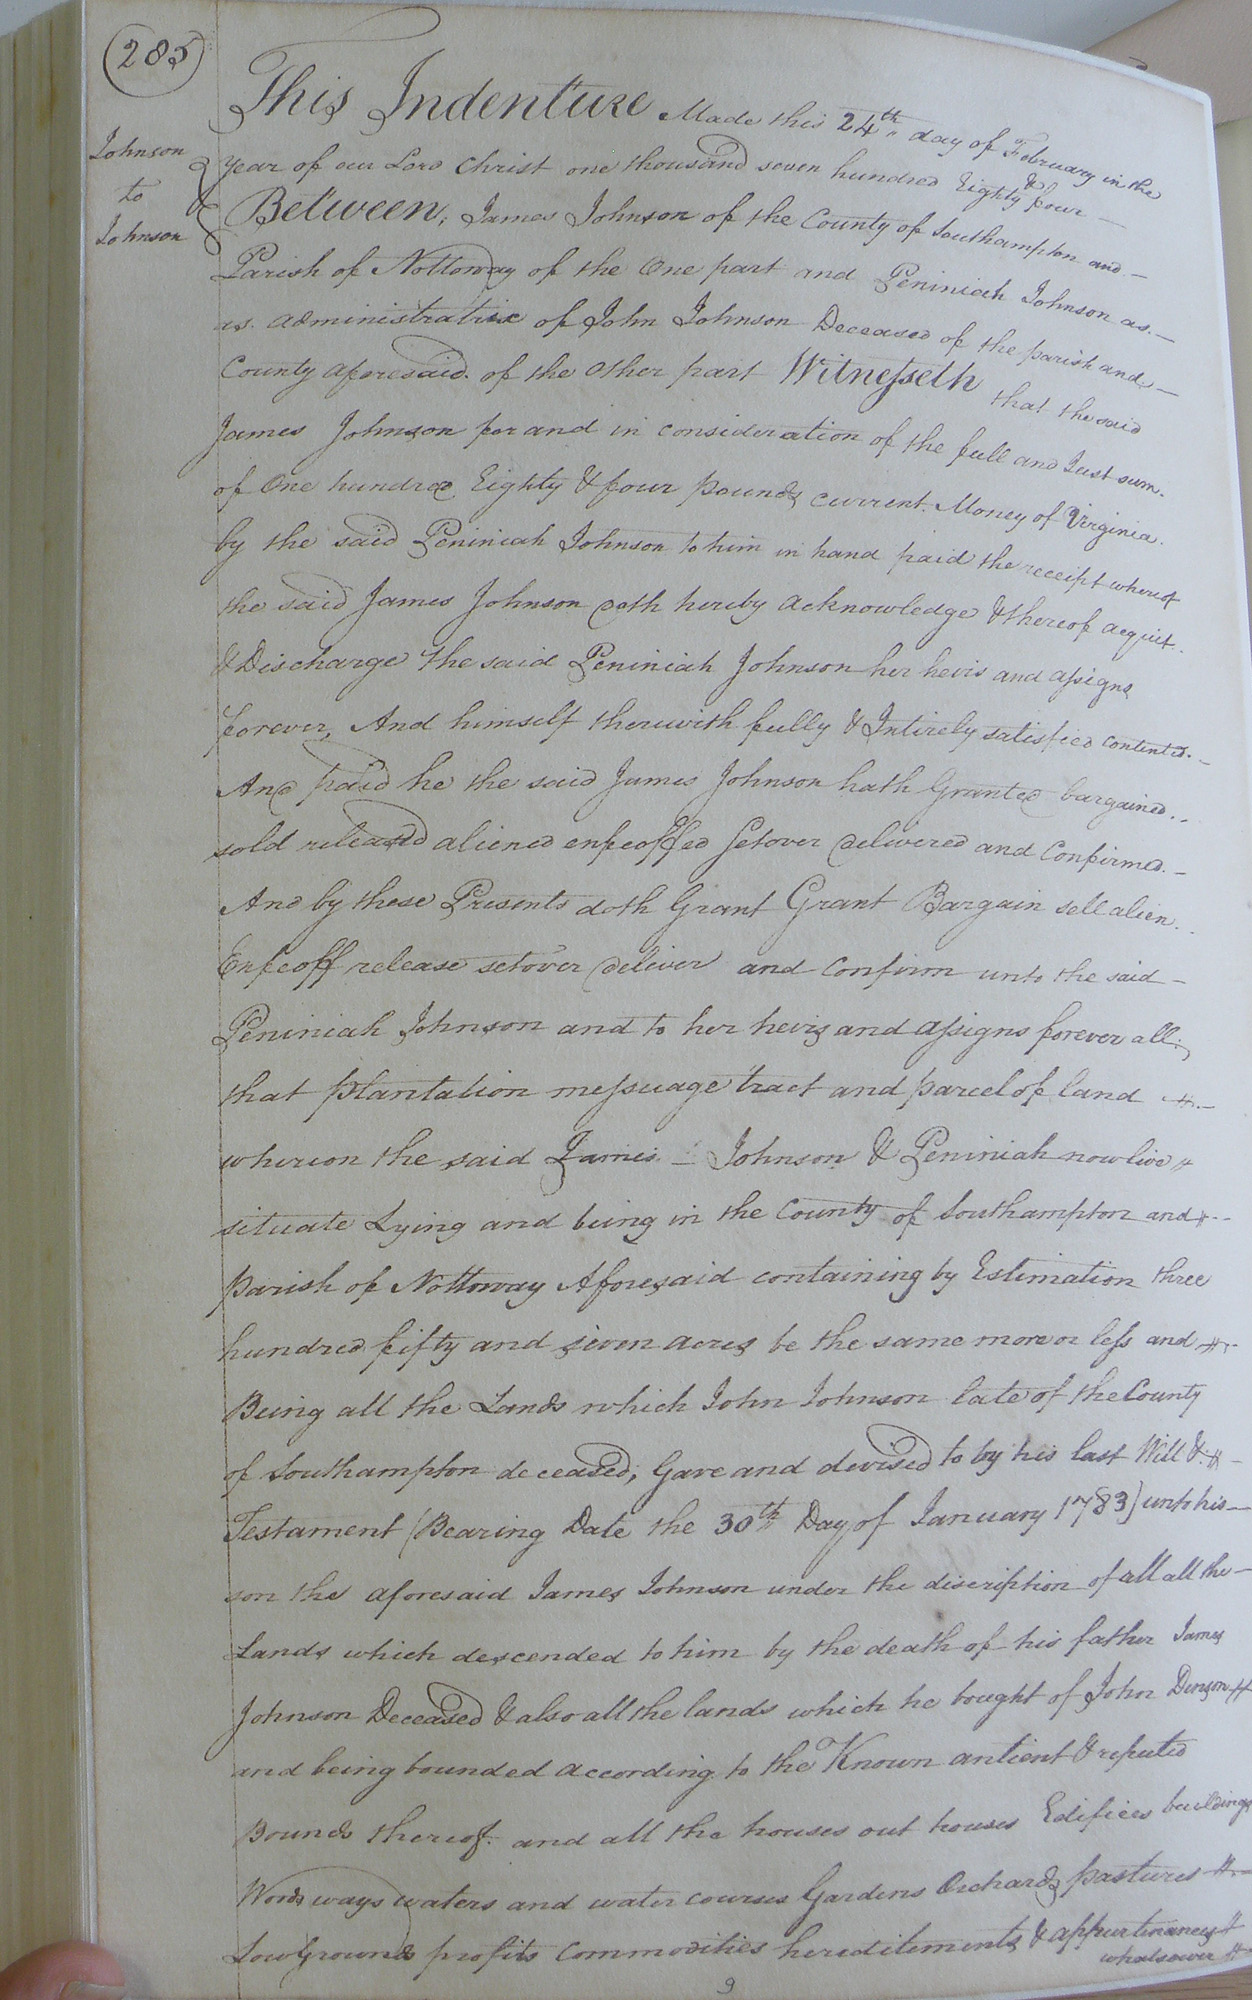 285
Johnson
to
Johnson
This Indenture Made this 24th day of February in the
year of our Lord Christ one thousand seven hundred Eighty & four
Between, James Johnson of the County of Southampton and
Parish of Nottoway of the One part and Peniniah Johnson as
as administratrix of John Johnson Deceased of the parish and
County aforesaid of the other part Witnesseth that the said
James Johnson for and in consideration of the full and Just sum
of One hundred Eighty & four pounds current Money of Virginia
by the said Peniniah Johnson to him in hand paid the receipt whereof
the said James Johnson doth hereby acknowledge & thereof acquit
& Discharge the said Peniniah Johnson her heirs and assigns
forever, And himself therewith fully & Intirely satisfied contented
And paid he the said James Johnson hath Granted bargained
sold released aliened enfeoffed Setover delivered and Confirmed
And by these Presents doth Grant Grant Bargain sell alien
Enfeoff release setover deliver and confirm unto the said
Peniniah Johnson and to her heirs and assigns forever all
that plantation messuage tract and parcel of land
whereon the said James Johnson & Peniniah now live
situate Lying and being in the County of Southampton and
parish of Nottoway Aforesaid containing by Estimation three
hundred fifty and seven acres be the same more or less and
Being all the Lands which John Johnson late of the County
of Southampton deceased, Gave and devised to by his last Will &
Testament (Bearing Date the 30th Day of January 1783) unto his
son the aforesaid James Johnson under the discription of all all the
Lands which descended to him by the death of his father James
Johnson Deceased & also all the lands which he bought of John Denson
and being bounded according to the Known antient & reputed
Bounds thereof and all the houses out houses Edifices buildings
Woods ways waters and water courses Gardens Orchards pastures
Low Grounds profits commodities hereditements & appurtinances
whatsoever
9